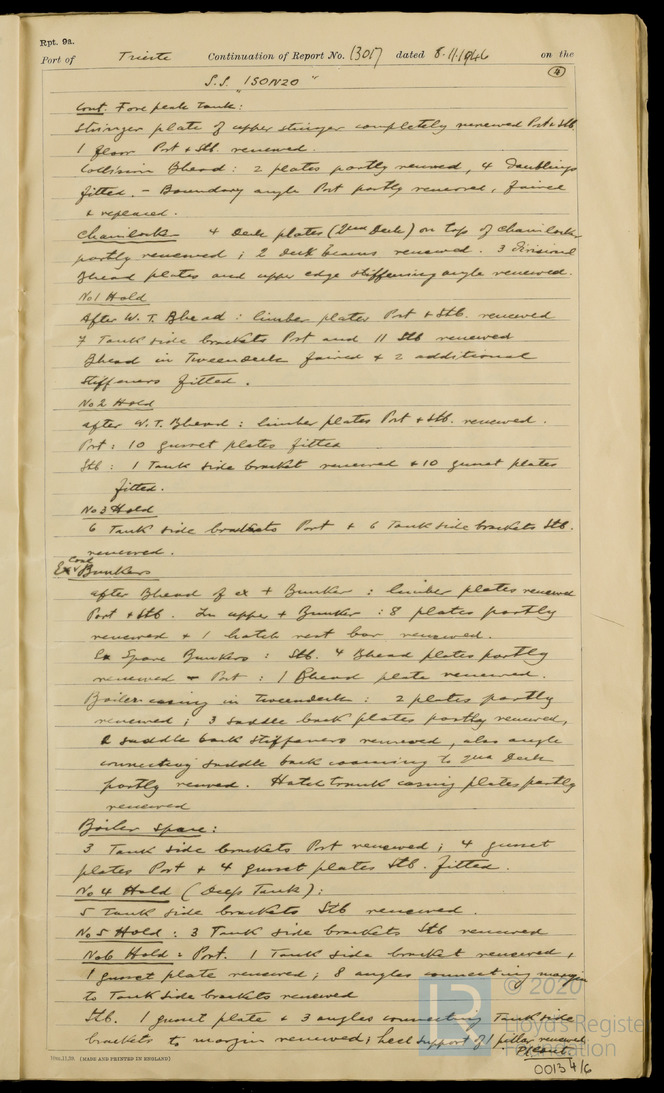 Rpt. 9a.
Port of Trieste Continuation of Report No. 13017 dated 8-11-1946 on the
S.S. "ISONZO"
4
Cont. Fore peak Tank:
Stringer plate of upper stringer completely renewed Port & Stb
1 floor Port & Stb. renewed.
Collision Bhead: 2 plates partly renewed, 4 doublings
fitted. - Boundary angle Port partly removed, faired
& replaced.
Chainlocker 4 Deck plates (2nd Deck) on top of chainlocker
partly renewed; 2 deck beams renewed. 3 divisional
Bhead plates and upper edge stiffening angle renewed.
No1 Hold
After W.T. Bhead: limber plates Port & Stb. renewed
7 Tank side brackets Port and 11 Stb renewed
Bhead in Tweendeck faired & 2 additional
stiffeners fitted.
No2 Hold
after W.T. Bhead: limber plates Port & Stb. renewed.
Port: 10 gusset plates fitted
Stb: 1 Tank side bracket renewed & 10 gusset plates
fitted.
No3 Hold
6 Tank side brackets Port & 6 Tank side brackets Stb.
renewed.
Coal
Ex Bunkers
after Bhead of ex + Bunker: limber plates renewed
Port & Stb. In upper + Bunker: 8 plates partly
renewed & 1 hatch rest bar renewed.
Ex Spare Bunkers: Stb. 4 Bhead plates partly
renewed - Port: 1 Bhead plate renewed.
Boiler casing in tweendeck: 2 plates partly
renewed; 3 saddle back plates partly renewed,
2 saddle back stiffeners renewed, also angle
connecting saddle back coaming to 2nd Deck
partly renewed. Hatch trunk casing plates partly
renewed
Boiler space:
3 Tank side brackets Port renewed; 4 gusset
plates Port & 4 gusset plates Stb. fitted.
No 4 Hold (Deep Tank):
5 Tank side brackets Stb renewed.
No 5 Hold: 3 Tank side brackets Stb renewed
No6 Hold: Port. 1 Tank side bracket renewed,
1 gusset plate renewed; 8 angles connecting margin
to Tank side brackets renewed
Stb. 1 gusset plate & 3 angles connecting Tank side
brackets to margin renewed; heel support of 1 pillar renewed
(MADE AND PRINTED IN ENGLAND)
0013 4/6
© 2020
LR
Lloyd's Register
Foundation